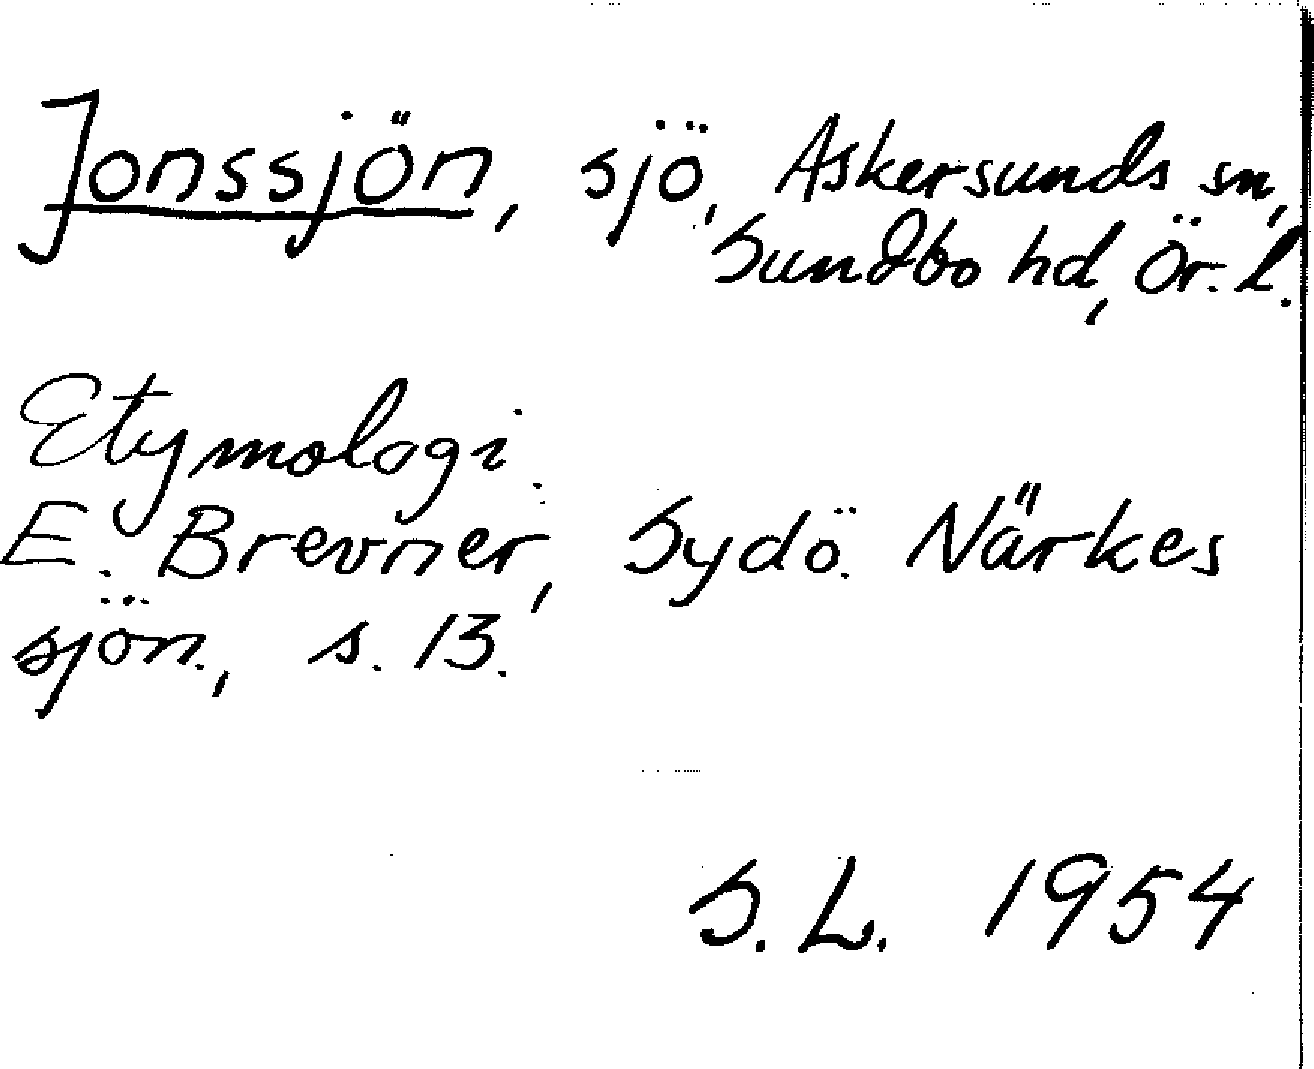 Jonssjön, sjö, Askersunds sn,
Sundbo hd, Ör. l.
Etymologi
E. Brevner, Sydö. Närkes
sjön., s. 13.
S. L. 1954